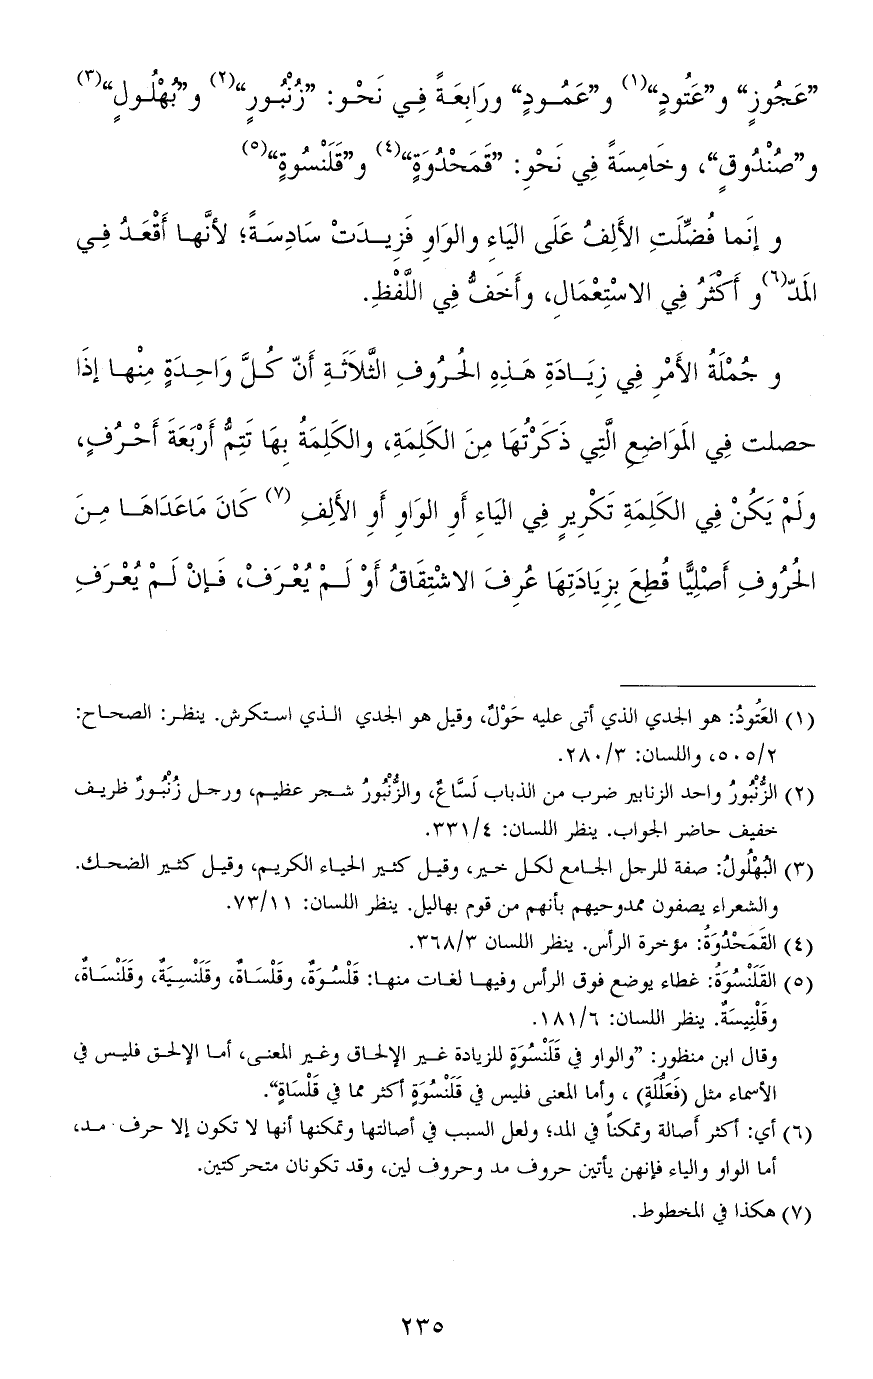 ”عَجُوزٍ“ و”عَتُودٍ“(١) و”عَمُـودٍ“ ورَابِعَـةً فِـي نَحْـوِ: ”زُنْبُـورٍ“(٢) و”بُهْلُـولٍ“(٣)
و”صُنْدُوقٍ“، وخَامِسَةً فِي نَحْوِ: ”قَمَحْدُوَةٍ“(٤) و”قَلَنْسُوةٍ“(٥)
و إنَما فُضِّلَتِ الأَلِفُ عَلَى اليَاءِ والوَاوِ فَزِيـدَتْ سَادِسَـةً؛ لأنَّهـا أَقْعَـدُ فِـي
المَدّ(٦)و أَكْثَرُ فِي الاسْتِعْمَالِ، وأَخَفُّ فِي اللَّفْظِ.
و جُمْلَةُ الأَمْرِ فِي زِيَـادَةِ هَـذِهِ الحُـرُوفِ الثَّلاَثَـةِ أَنّ كُـلَّ وَاحِـدَةٍ مِنْهـا إذَا
حصلت فِي المَوَاضِعِ الَّتِي ذَكَرْتُهَا مِنَ الكَلِمَةِ، والكَلِمَةُ بِهَا تَتِمُّ أَرْبَعَةَ أَحْـرُفٍ،
ولَمْ يَكُنْ فِي الكَلِمَةِ تَكْرِيرٍ فِي اليَاءِ أَوِ الوَاوِ أَوِ الأَلِفِ (٧) كَانَ مَاعَدَاهَـا مِـنَ
الحُرُوفِ أَصْلِيًّا قُطِعَ بِزِيَادَتِهَا عُرِفَ الاشْتِقَاقُ أَوْ لَـمْ يُعْـرَفْ، فَـإنْ لَـمْ يُعْـرَفِ
(١) العَتُودُ: هو الجدي الذي أتى عليه حَوْلٌ، وقيل هو الجدي الـذي اسـتكرش. ينظـر: الصحـاح:
٥٠٥/٢، واللسان: ٢٨٠/٣.
(٢) الزُّنْبُورُ واحد الزنابير ضرب من الذباب لَسَّاعٌ، والزُّنْبُورُ شـجر عظيـم، ورجـل زُنْبُـورٌ ظريـف
خفيف حاضر الجواب. ينظر اللسان: ٣٣١/٤.
(٣) البُهْلُولُ: صفة للرجل الجـامع لكـل خـير، وقيـل كثـير الحيـاء الكريـم، وقيـل كثـير الضحـك.
والشعراء يصفون ممدوحيهم بأنهم من قوم بهاليل. ينظر اللسان: ٧٣/١١.
(٤) القَمَحْدُوَةُ: مؤخرة الرأس. ينظر اللسان ٣٦٨/٣.
(٥) القَلَنْسُوَةُ: غطاء يوضع فوق الرأس وفيهـا لغـات منهـا: قَلْسُـوَةٌ، وقَلْسَـاةٌ، وقَلَنْسِـيَةٌ، وقَلَنْسَـاةٌ،
وقَلْنِيسَةٌ. ينظر اللسان: ١٨١/٦.
وقال ابن منظور: ”والواو في قَلَنْسُوَةٍ للزيادة غـير الإلحـاق وغـير المعنـى، أمـا الإلحـق فليـس في
الأسماء مثل (فَعَلُّلَةٍ) ، وأما المعنى فليس في قَلَنْسُوَةٍ أكثر مما في قَلْسَاةٍ“.
(٦) أي: أكثر أصالة وتمكناً في المد؛ ولعل السبب في أصالتها وتمكنها أنها لا تكون إلا حرف مـد،
أما الواو والياء فإنهن يأتين حروف مد وحروف لين، وقد تكونان متحركتين.
(٧) هكذا في المخطوط.
٢٣٥